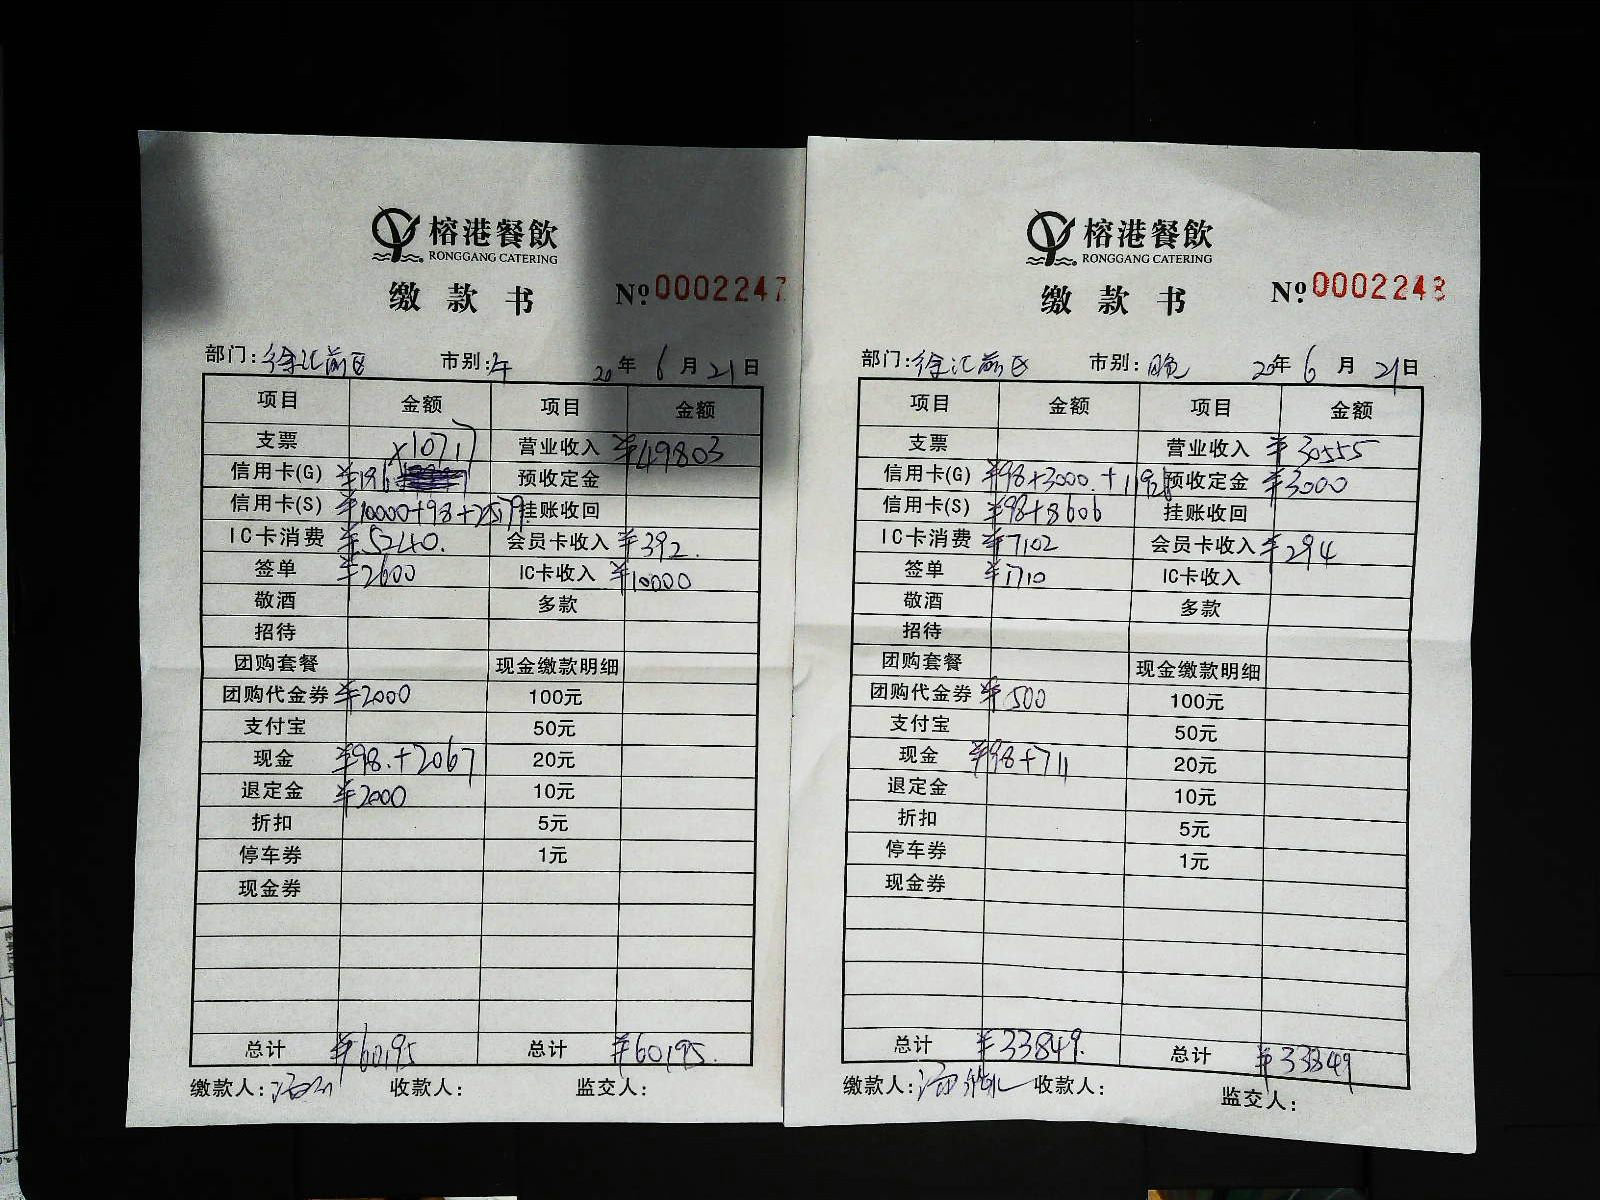 榕港餐飲 榕港餐飲
RONGGANG CATERING RONGGANG CATERING
缴款书 No 0002247 缴款书 No 0002248
部门: 徐汇前区 市别: 午 20年 6月 21日 部门: 徐汇前区 市别: 晚 20年 6月 21日
项目 金额 项目 金额 项目 金额 项目 金额
支票 营业收入 ¥49803 支票 营业收入 ¥30555
信用卡(G) ¥196+10717 预收定金 信用卡(G) ¥98+3000.+11926 预收定金 ¥3000
信用卡(S) ¥10000+98+25179. 挂账收回 信用卡(S) ¥98+8606 挂账收回
IC卡消费 ¥5240. 会员卡收入 ¥392. IC卡消费 ¥7102 会员卡收入 ¥294
签单 ¥2600 IC卡收入 ¥10000 签单 ¥1710 IC卡收入
敬酒 多款 敬酒 多款
招待 招待
团购套餐 现金缴款明细 团购套餐 现金缴款明细
团购代金券 ¥2000 100元 团购代金券 ¥500 100元
支付宝 50元 支付宝 50元
现金 ¥98.+2067 20元 现金 ¥98+711 20元
退定金 ¥2000 10元 退定金 10元
折扣 5元 折扣 5元
停车券 1元 停车券 1元
现金券 现金券
总计 ¥60195 总计 ¥60195. 总计 ¥33849. 总计 ¥33849
缴款人: 收款人: 监交人: 缴款人: 收款人: 监交人: